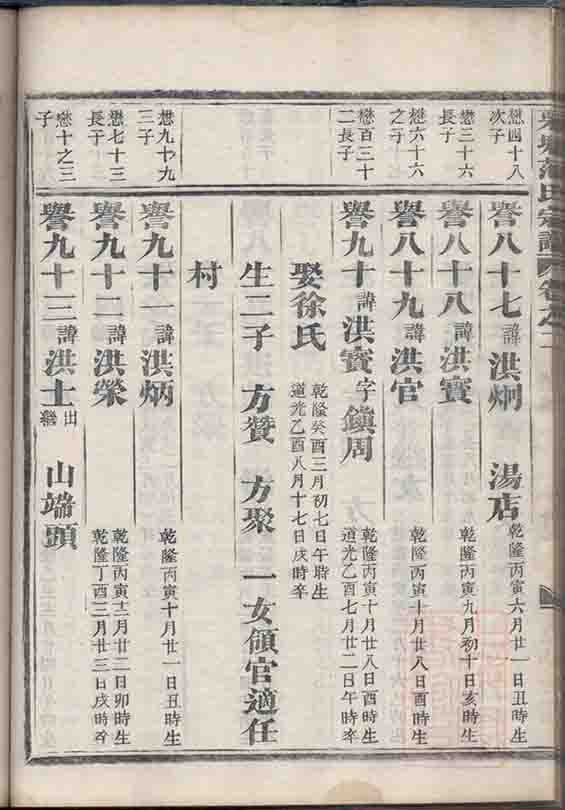 范氏宗譜 卷之二
懋四十八次子
譽八十七 諱 洪炯 湯店
乾隆丙寅六月廿一日丑時生
懋三十六長子
譽八十八 諱 洪賓
乾隆丙寅九月初十日亥時生
懋六十六之子
譽八十九 諱 洪官
乾隆丙寅十月廿八日酉時生
懋百三十二長子
譽九十 諱 洪賓 字 鎮周
乾隆丙寅十月廿八日酉時生
道光乙酉七月廿二日午時卒
娶徐氏
乾隆癸酉三月初七日午時生
道光乙酉八月十七日戌時卒
生二子 方贊 方聚 一女領官適任
村
懋九十九三子
譽九十一 諱 洪炳
乾隆丙寅十月廿一日丑時生
懋七十三長子
譽九十二 諱 洪榮
乾隆丙寅十二月廿二日卯時生
乾隆丁酉三月廿三日戌時卒
懋十之三子
譽九十三 諱 洪士 出繼 山端頭